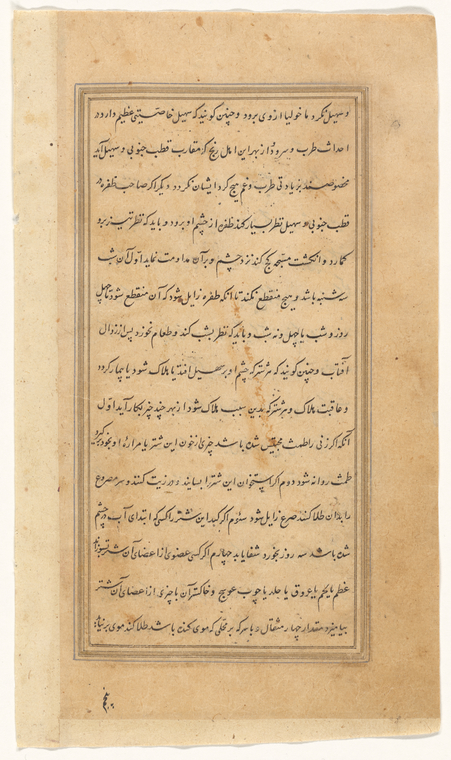 و سهیل نکرد ماخولیا از وی برود و چنین گویند که سهیل خاصیتی عظیم دارد در
احداث طرب و سرود از بهر این اهل زنج که مقارب قطب جنوبی و سهیل‌اند
مخصوصند بزیادتی طرب و غم هیچ کرد ایشان نکردد و دیکر اکر صاحب ظفره در
قطب جنوبی و سهیل نظر بسیار کند ظفره از چشم او برود و باید که نظر
کمارد و انکشت مسبحه کج کند نزد چشم و بر آن مداومت نماید اول آن شب
سه شنبه باشد و هیچ منقطع نکند تا آنکه ظفره زایل شود که آن منقطع شود تا چهل
روز و شب یا چهل و نه شب و باید که نظر بشب کند و طعام نخورد پس از زوال
آفتاب و چنین گویند که هر شتر که چشم او بر سهیل افتد یا هلاک شود یا بیمار کردد
و عاقبت هلاک و هر شتر که بدین سبب هلاک شود از بهر چند چیز بکار آید اول
آنکه اکر زنی را طمث محتبس شده باشد چیزی از خون این شتر یا مراره او بخود
طمث روانه شود دوم اکر استخوان این شتر را بسایند و در زیت کنند و سر مصروع
را بدان طلا کنند صرع زایل شود سوم اکر کبد این شتر را کسی که ابتدای آب در چشم
شده باشد سه روز بخورد شفا یابد چهارم اکر کسی عضوی از اعضای آن شتر
عظم یا لحم یا عروق یا جلد با چوب عوسج و خاکستر آن با چیزی از اعضای آن شتر
بیامیزد مقدار چهار مثقال و با سرکه بر محلی که موی کنده باشد طلا کند موی بر نیاید